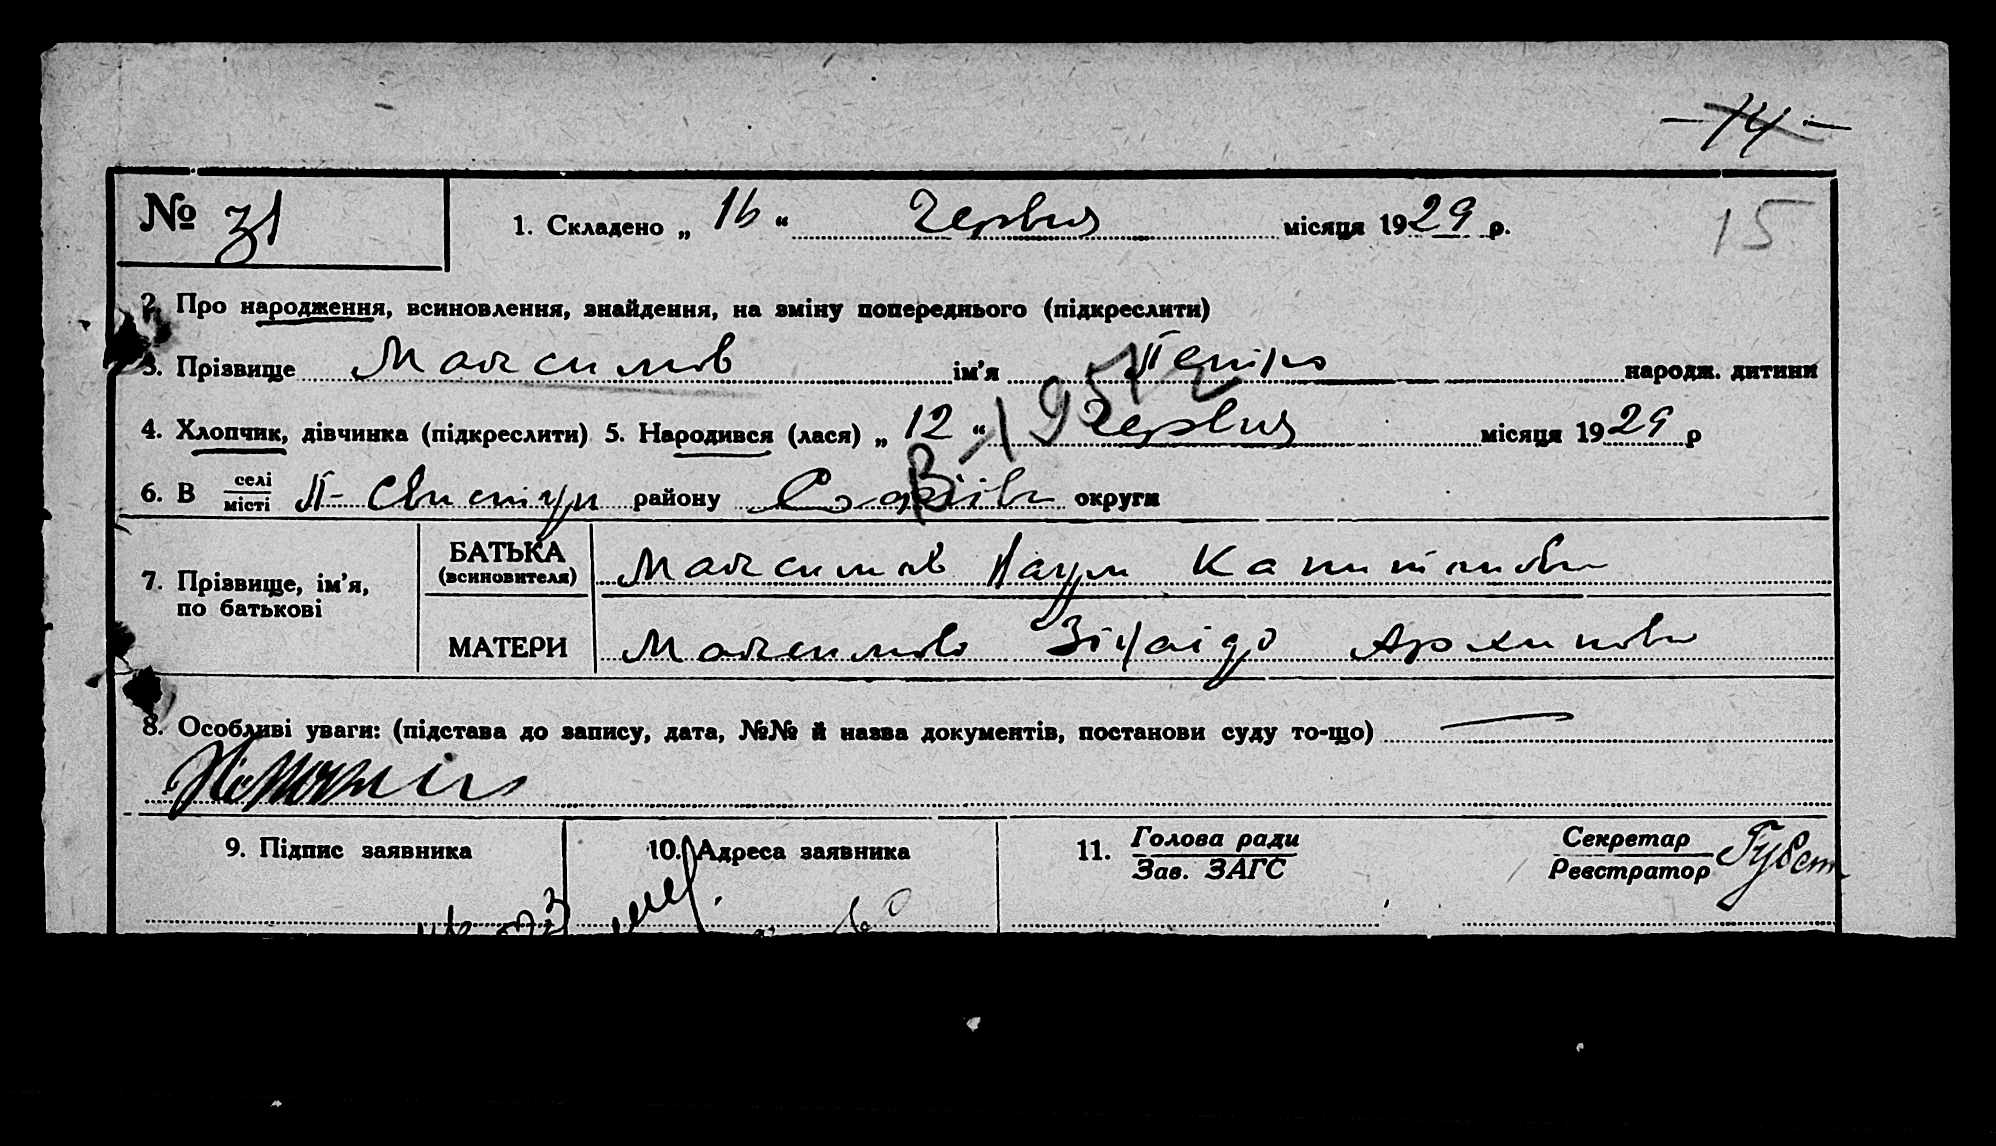 -14-
№ 31 1. Складено „ 16 “ Червня місяця 1929 р. 15
2. Про народження, всиновлення, знайдення, на зміну попереднього (підкреслити)
3. Прізвище Максимов ім’я Петро народж. дитини
4. Хлопчик, дівчинка (підкреслити) 5. Народився (лася) „ 12 “ Червня місяця 1929 р
6. В селі місті П- Свистун району Софіїв округи
7. Прізвище, ім’я, по батькові
БАТЬКА (всиновителя) Максимов Наум Капитонов
МАТЕРИ Максимова Зінаіда Архипов
8. Особливі уваги: (підстава до запису, дата, №№ й назва документів, постанови суду то-що)
9. Підпис заявника 10. Адреса заявника 11. Голова ради Зав. ЗАГС Секретар Реєстратор